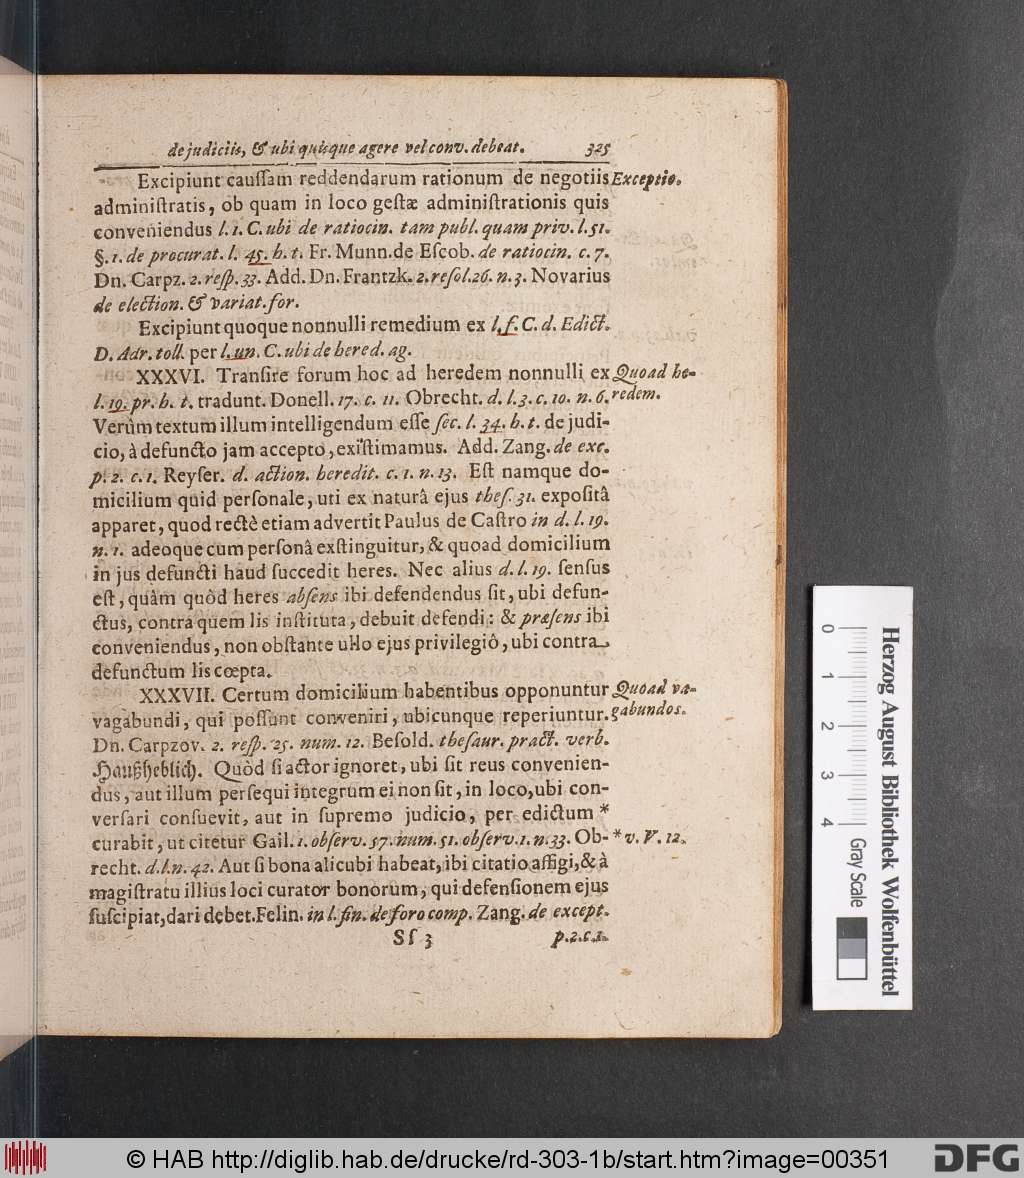 de judiciis, & ubi quisque agere vel conv. debeat. 325
Excipiunt cauſſam reddendarum rationum de negotiis Exceptio.
adminiſtratis, ob quam in loco geſtæ adminiſtrationis quis
conveniendus l. 1. C. ubi de ratiocin. tam publ. quam priv. l. 51.
§. 1. de procurat. l. 45. h. t. Fr. Munn. de Eſcob. de ratiocin. c. 7.
Dn. Carpz. 2. reſp. 33. Add. Dn. Frantzk. 2. reſol. 26. n. 3. Novarius
de election. & variat. for.
Excipiunt quoque nonnulli remedium ex l. f. C. d. Edict.
D. Adr. toll. per l. un. C. ubi de hered. ag.
XXXVI. Tranſire forum hoc ad heredem nonnulli ex Quoad he-
l. 19. pr. h. t. tradunt. Donell. 17. c. 11. Obrecht. d. l. 3. c. 10. n. 6. redem.
Verùm textum illum intelligendum eſſe ſec. l. 34. h. t. de judi-
cio, à defuncto jam accepto, exiſtimamus. Add. Zang. de exc.
p. 2. c. 1. Reyſer. d. action. heredit. c. 1. n. 13. Eſt namque do-
micilium quid perſonale, uti ex naturâ ejus theſ. 31. expoſitâ
apparet, quod rectè etiam advertit Paulus de Caſtro in d. l. 19.
n. 1. adeoque cum perſonâ exſtinguitur, & quoad domicilium
in jus defuncti haud ſuccedit heres. Nec alius d. l. 19. ſenſus
eſt, quàm quôd heres abſens ibi defendendus ſit, ubi defun-
ctus, contra quem lis inſtituta, debuit defendi: & præſens ibi
conveniendus, non obſtante ullo ejus privilegiô, ubi contra
defunctum lis cœpta.
XXXVII. Certum domicilium habentibus opponuntur Quoad va-
vagabundi, qui poſſunt conveniri, ubicunque reperiuntur. gabundos.
Dn. Carpzov. 2. reſp. 25. num. 12. Beſold. theſaur. pract. verb.
Haußheblich. Quòd ſi actor ignoret, ubi ſit reus convenien-
dus, aut illum perſequi integrum ei non ſit, in loco, ubi con-
verſari conſuevit, aut in ſupremo judicio, per edictum *
curabit, ut citetur Gail. 1. obſerv. 57. num. 51. obſerv. 1. n. 33. Ob- * v. V. 12.
recht. d. l. n. 42. Aut ſi bona alicubi habeat, ibi citatio affigi, & à
magiſtratu illius loci curator bonorum, qui defenſionem ejus
ſuſcipiat, dari debet. Felin. in l. fin. de foro comp. Zang. de except.
Sſ 3 p. 2. c. 1.
0 1 2 3 4
Gray Scale
Herzog August Bibliothek Wolfenbüttel
© HAB http://diglib.hab.de/drucke/rd-303-1b/start.htm?image=00351
DFG